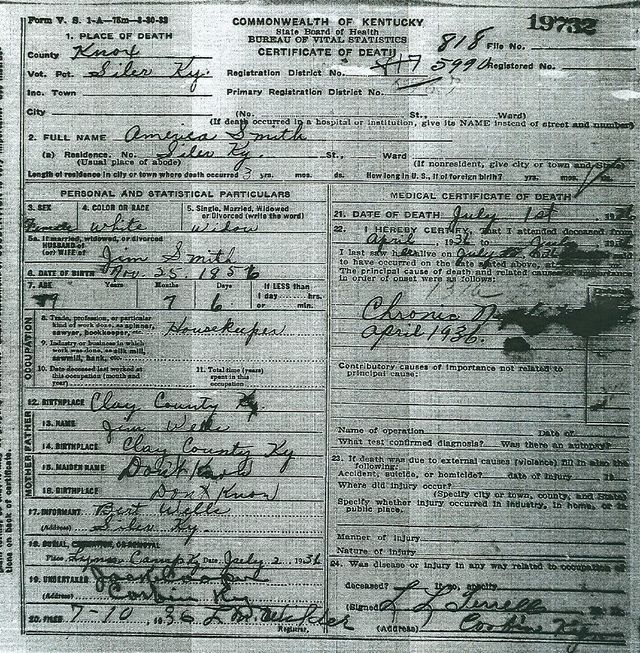 Form V. S. 1-A—75m—8-30-33
COMMONWEALTH OF KENTUCKY
State Board of Health
BUREAU OF VITAL STATISTICS
CERTIFICATE OF DEATH
19732
File No.
818
1. PLACE OF DEATH
County Knox
Vot. Pct. Siler Ky.
Registration District No. 5990
Registered No.
Inc. Town
Primary Registration District No.
City
(No. St., Ward)
(If death occurred in a hospital or institution, give its NAME instead of street and number)
2. FULL NAME America Smith
(a) Residence. No. Siler Ky. St., Ward
(Usual place of abode)
(If nonresident, give city or town and State)
Length of residence in city or town where death occurred 3 yrs. mos. ds. How long in U. S., if of foreign birth? yrs. mos.
PERSONAL AND STATISTICAL PARTICULARS
3. SEX
4. COLOR OR RACE
5. Single, Married, Widowed
or Divorced (write the word)
Female White Widow
5a. If married, widowed, or divorced
HUSBAND of
(or) WIFE of Jim Smith
6. DATE OF BIRTH Nov 25 1956
7. AGE Years Months Days If LESS than
1 day hrs.
or min.
79 7 6
OCCUPATION
8. Trade, profession, or particular
kind of work done, as spinner,
sawyer, bookkeeper, etc. Housekeeper
9. Industry or business in which
work was done, as silk mill,
sawmill, bank, etc.
10. Date deceased last worked at
this occupation (month and
year)
11. Total time (years)
spent in this
occupation
12. BIRTHPLACE Clay County Ky
FATHER
13. NAME Jim Wells
14. BIRTHPLACE Clay County Ky
MOTHER
15. MAIDEN NAME Dont Know
16. BIRTHPLACE Dont Know
17. INFORMANT Bert Wells
(Address) Siler Ky
18. BURIAL, CREMATION, OR REMOVAL
Place Lynn Camp Ky Date July 2 1936
19. UNDERTAKER Jack Cooper
(Address) Corbin Ky
20. FILED 7-10 1936
Registrar.
MEDICAL CERTIFICATE OF DEATH
21. DATE OF DEATH July 1st 19
22. I HEREBY CERTIFY, that I attended deceased from
April 1936 to July
I last saw her alive on
to have occurred on the date stated above, at
The principal cause of death and related causes
in order of onset were as follows:
Chronic
April 1936.
Contributory causes of importance not related to
principal cause:
Name of operation Date of
What test confirmed diagnosis? Was there an autopsy?
23. If death was due to external causes (violence) fill in also the
following:
Accident, suicide, or homicide? date of injury 19
Where did injury occur?
(Specify city or town, county, and State)
Specify whether injury occurred in industry, in home, or in
public place.
Manner of injury
Nature of injury
24. Was disease or injury in any way related to occupation of
deceased? If so, specify
(Signed) L L Terrell
(Address) Corbin Ky
tions on back of certificate.